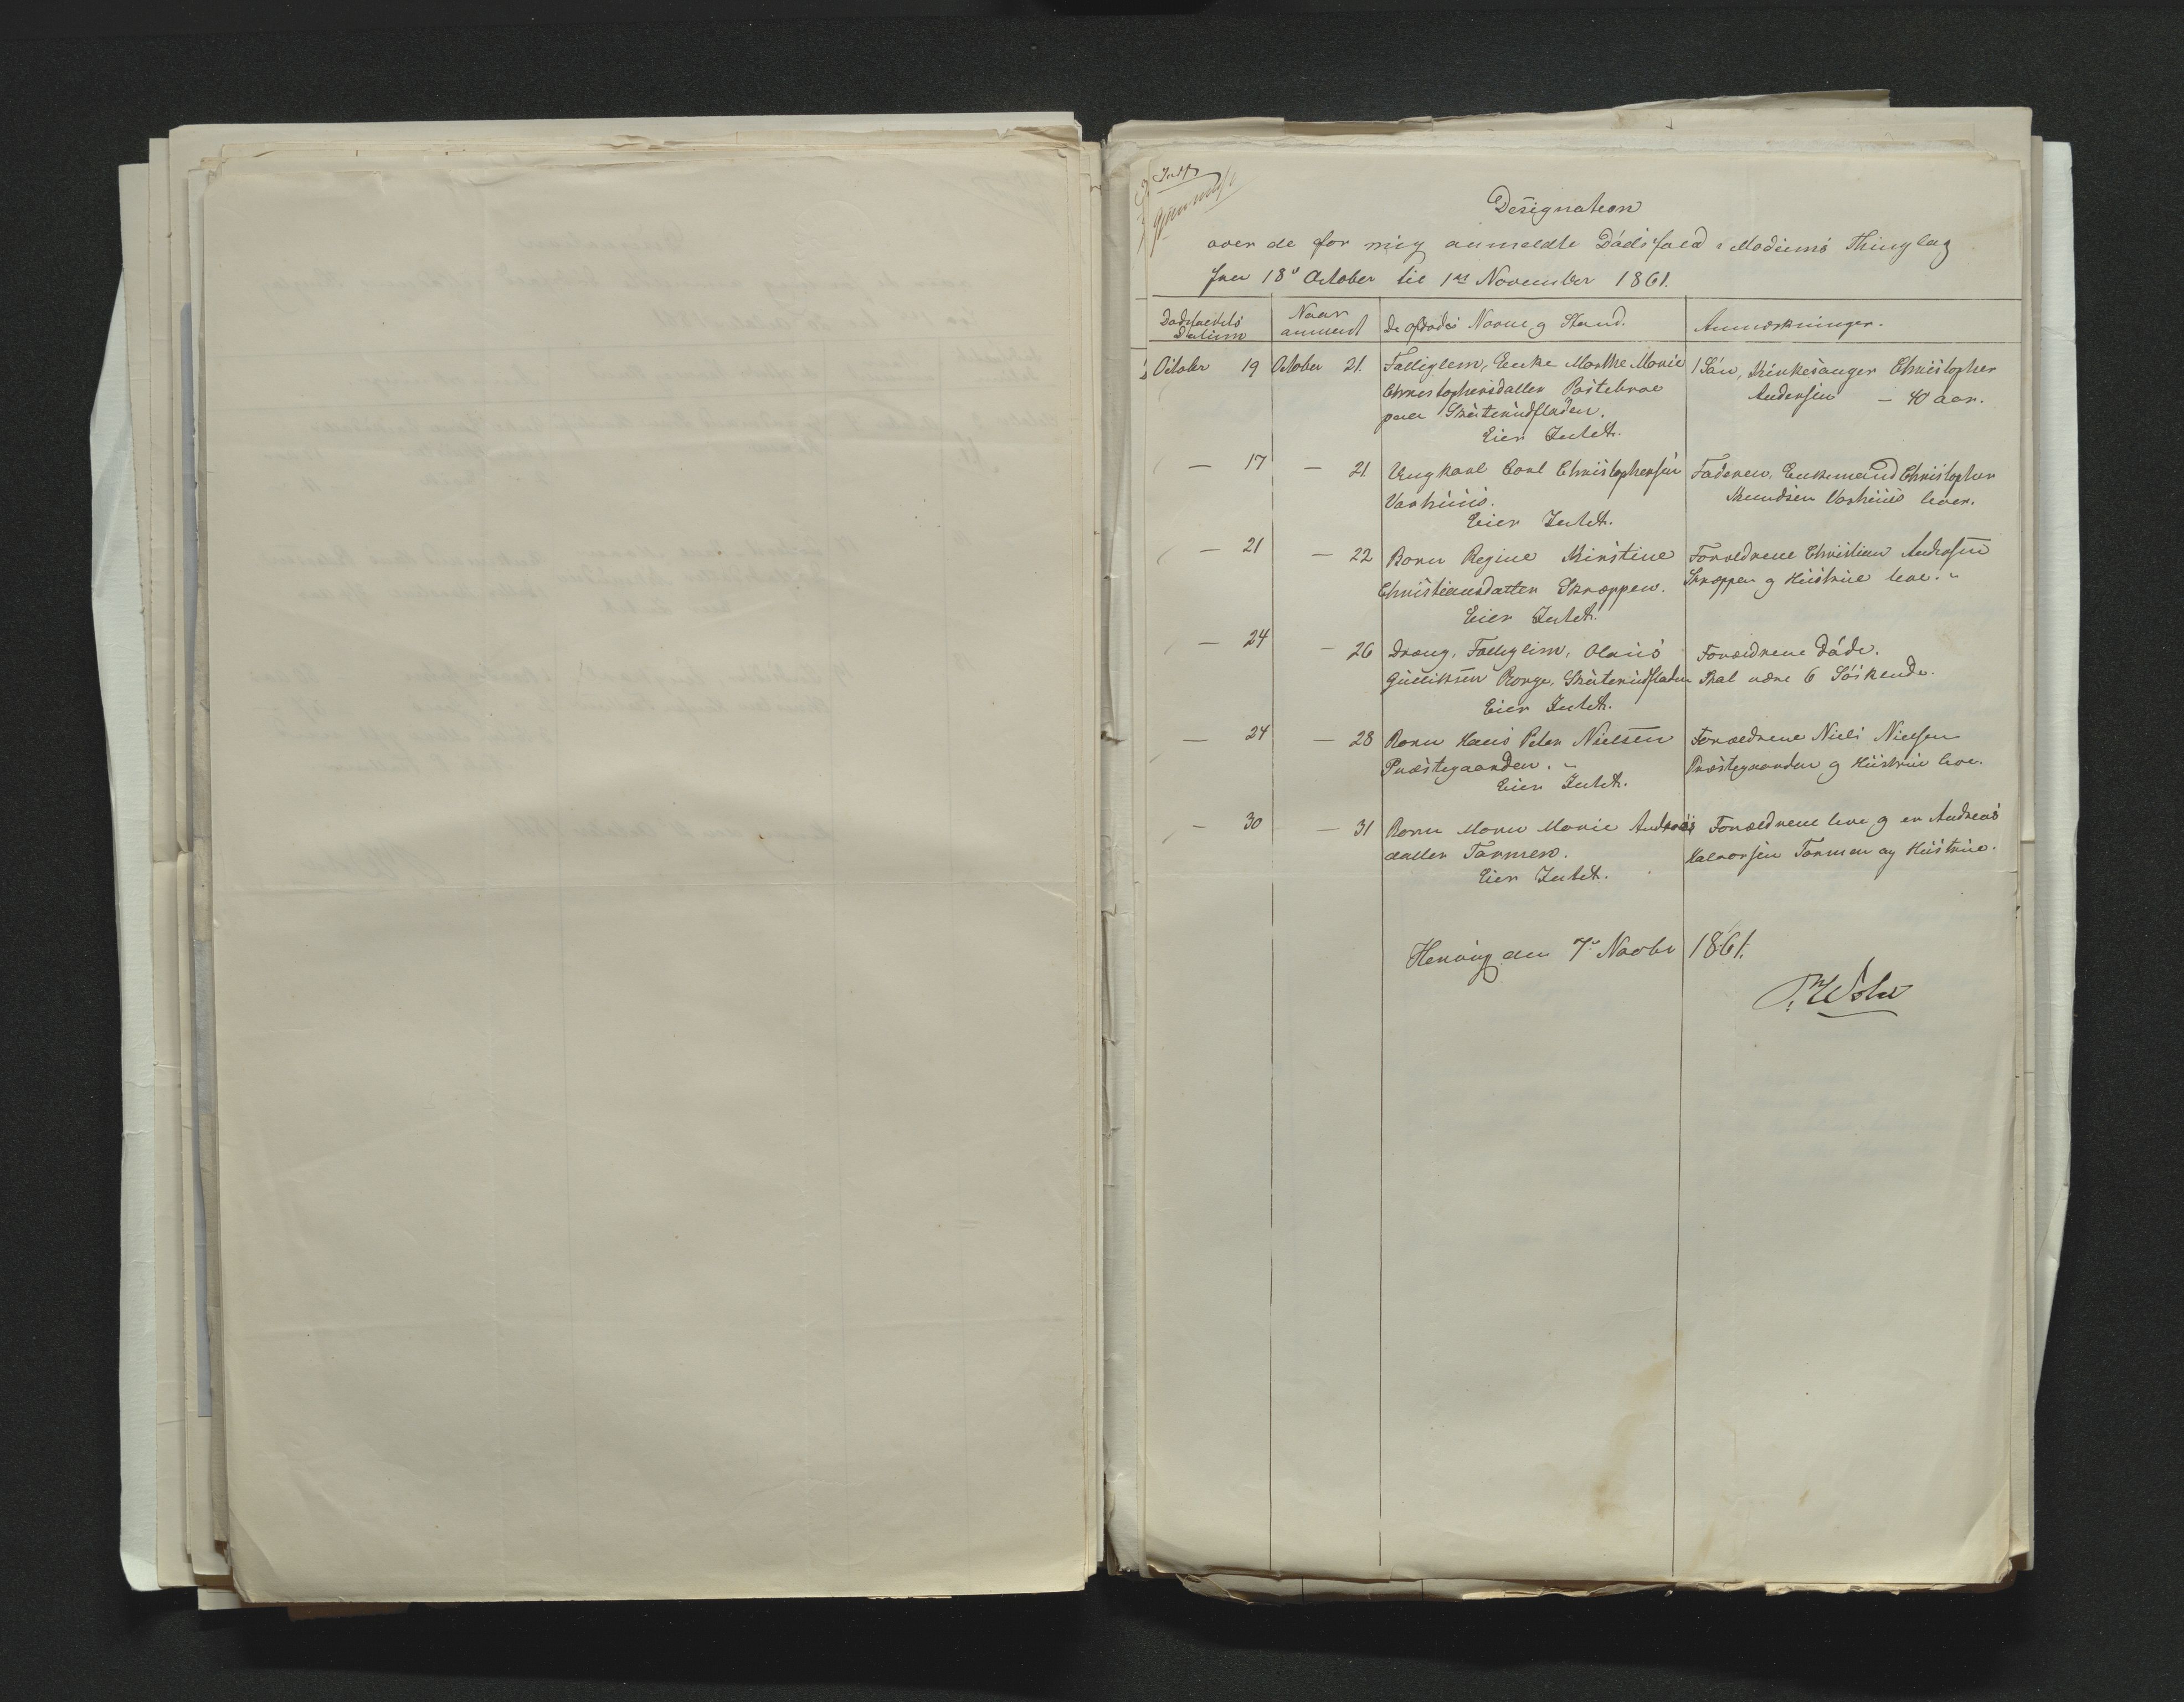 Designation
over de for mig anmeldte Dödsfald i Modums Thinglag
fra 18de October til 1ste November 1861.
Dødsfaldets Datum
Naar anmeldt
De afdødes Navne og Stand.
Anmærkninger.
October 19 October 21. Fattiglem, Enke Marthe Marie 1 Sön, Kirkesanger Christopher
Christophersdatter Påstebroe Andersen — 40 aar.
paa Skuterudfladen.
Eier Intet.
— 17 — 21 Ungkarl Carl Christophersen Faderen, Enkemand Christopher
Varhuus. Knudsen Varhuus lever.
Eier Intet.
— 21 — 22 Barn Regine Kirstine Forældrene Christian Andersen
Christiansdatter Skræppen. Skræppen og Hustrue leve.
Eier Intet.
— 24 — 26 Dræng, Fattiglem, Olaus Forældrene döde.
Gulliksen Korge, Skuterudfladen Skal være 6 Söskende.
Eier Intet.
— 24 — 28 Barn Hans Peter Nielsen Forældrene Niels Nielsen
Præstegaarden. Præstegaarden og Hustrue leve.
Eier Intet.
— 30 — 31 Barn Maren Marie Andreas Forældrene leve og er Andreas
datter Tarmen. Halvorsen Tarmen og Hustrue.
Eier Intet.
den 7de Novbr 1861.